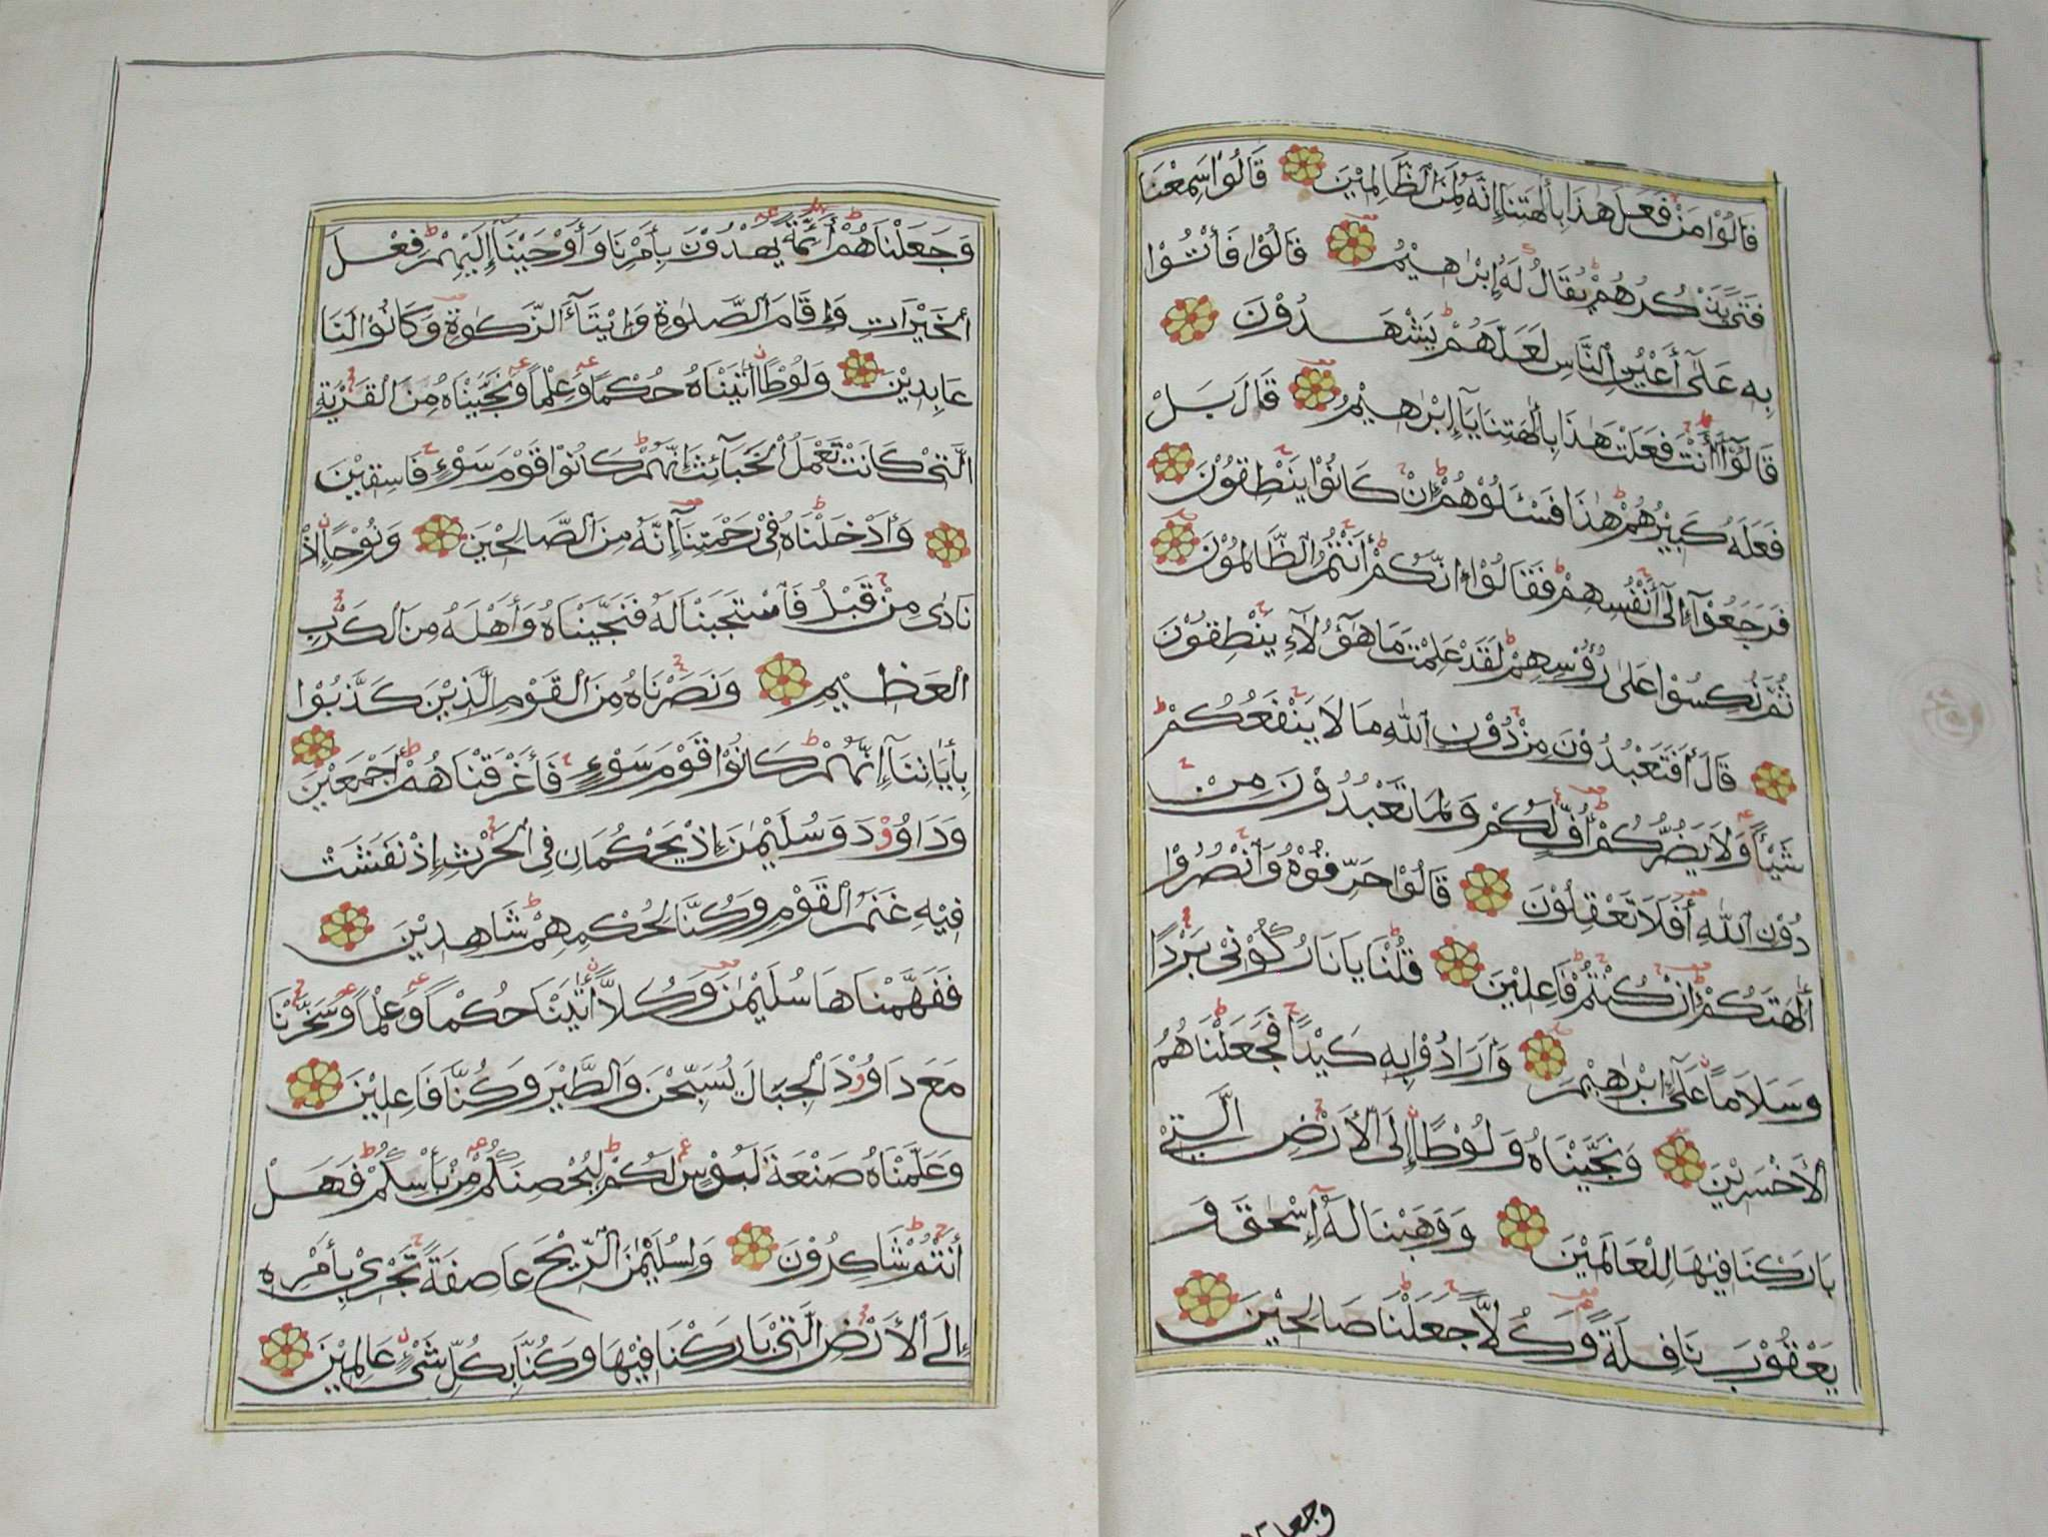 قَالُوْا مَنْ فَعَلَ هٰذَا بِأٰلِهَتِنَا إِنَّهُ لَمِنَ ٱلظَّالِمِيْنَ قَالُوْا سَمِعْنَا
فَتًى يَذْكُرُهُمْ يُقَالُ لَهُ إِبْرٰهِيْمُ قَالُوْا فَأْتُوْا
بِهِ عَلَىٰٓ أَعْيُنِ ٱلنَّاسِ لَعَلَّهُمْ يَشْهَدُوْنَ
قَالُوْٓا أَأَنْتَ فَعَلْتَ هٰذَا بِأٰلِهَتِنَا يَآ إِبْرٰهِيْمُ قَالَ بَلْ
فَعَلَهُ كَبِيْرُهُمْ هٰذَا فَسْـَٔلُوْهُمْ إِنْ كَانُوْا يَنْطِقُوْنَ
فَرَجَعُوْٓا إِلَىٰٓ أَنْفُسِهِمْ فَقَالُوْٓا إِنَّكُمْ أَنْتُمُ ٱلظَّالِمُوْنَ
ثُمَّ نُكِسُوْا عَلَىٰ رُؤُسِهِمْ لَقَدْ عَلِمْتَ مَا هٰٓؤُلَآءِ يَنْطِقُوْنَ
قَالَ أَفَتَعْبُدُوْنَ مِنْ دُوْنِ ٱللّٰهِ مَا لَا يَنْفَعُكُمْ
شَيْـًٔا وَلَا يَضُرُّكُمْ أُفٍّ لَّكُمْ وَلِمَا تَعْبُدُوْنَ مِنْ
دُوْنِ ٱللّٰهِ أَفَلَا تَعْقِلُوْنَ قَالُوْا حَرِّقُوْهُ وَٱنْصُرُوْٓا
أٰلِهَتَكُمْ إِنْ كُنْتُمْ فَاعِلِيْنَ قُلْنَا يَا نَارُ كُوْنِيْ بَرْدًا
وَسَلَامًا عَلَىٰٓ إِبْرٰهِيْمَ وَأَرَادُوْا بِهِ كَيْدًا فَجَعَلْنَاهُمُ
ٱلْأَخْسَرِيْنَ وَنَجَّيْنَاهُ وَلُوْطًا إِلَى ٱلْأَرْضِ ٱلَّتِيْ
بَارَكْنَا فِيْهَا لِلْعَالَمِيْنَ وَوَهَبْنَا لَهُ إِسْحٰقَ وَ
يَعْقُوْبَ نَافِلَةً وَكُلًّا جَعَلْنَا صَالِحِيْنَ
وَجَعَلْنَاهُمْ أَئِمَّةً يَهْدُوْنَ بِأَمْرِنَا وَأَوْحَيْنَآ إِلَيْهِمْ فِعْلَ
ٱلْخَيْرَاتِ وَإِقَامَ ٱلصَّلٰوةِ وَإِيْتَآءَ ٱلزَّكٰوةِ وَكَانُوْا لَنَا
عَابِدِيْنَ وَلُوْطًا أٰتَيْنَاهُ حُكْمًا وَعِلْمًا وَنَجَّيْنَاهُ مِنَ ٱلْقَرْيَةِ
ٱلَّتِيْ كَانَتْ تَعْمَلُ ٱلْخَبَآئِثَ إِنَّهُمْ كَانُوْا قَوْمَ سَوْءٍ فَاسِقِيْنَ
وَأَدْخَلْنَاهُ فِيْ رَحْمَتِنَآ إِنَّهُ مِنَ ٱلصَّالِحِيْنَ وَنُوْحًا إِذْ
نَادٰى مِنْ قَبْلُ فَٱسْتَجَبْنَا لَهُ فَنَجَّيْنَاهُ وَأَهْلَهُ مِنَ ٱلْكَرْبِ
ٱلْعَظِيْمِ وَنَصَرْنَاهُ مِنَ ٱلْقَوْمِ ٱلَّذِيْنَ كَذَّبُوْا
بِأٰيَاتِنَآ إِنَّهُمْ كَانُوْا قَوْمَ سَوْءٍ فَأَغْرَقْنَاهُمْ أَجْمَعِيْنَ
وَدَاوُوْدَ وَسُلَيْمٰنَ إِذْ يَحْكُمَانِ فِي ٱلْحَرْثِ إِذْ نَفَشَتْ
فِيْهِ غَنَمُ ٱلْقَوْمِ وَكُنَّا لِحُكْمِهِمْ شَاهِدِيْنَ
فَفَهَّمْنَاهَا سُلَيْمٰنَ وَكُلًّا أٰتَيْنَا حُكْمًا وَعِلْمًا وَسَخَّرْنَا
مَعَ دَاوُوْدَ ٱلْجِبَالَ يُسَبِّحْنَ وَٱلطَّيْرَ وَكُنَّا فَاعِلِيْنَ
وَعَلَّمْنَاهُ صَنْعَةَ لَبُوْسٍ لَكُمْ لِتُحْصِنَكُمْ مِنْ بَأْسِكُمْ فَهَلْ
أَنْتُمْ شَاكِرُوْنَ وَلِسُلَيْمٰنَ ٱلرِّيْحَ عَاصِفَةً تَجْرِيْ بِأَمْرِهِ
إِلَى ٱلْأَرْضِ ٱلَّتِيْ بَارَكْنَا فِيْهَا وَكُنَّا بِكُلِّ شَيْءٍ عَالِمِيْنَ